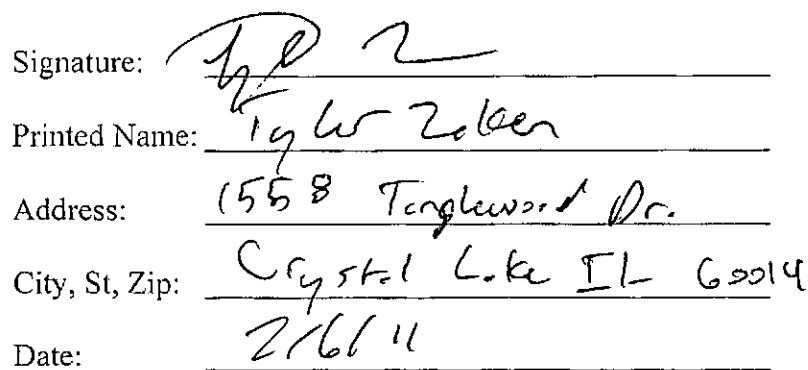 Signature:
Printed Name: Tyler Zoken
Address: 1558 Tanglewood Dr.
City, St, Zip: Crystal Lake IL 60014
Date: 2/6/11